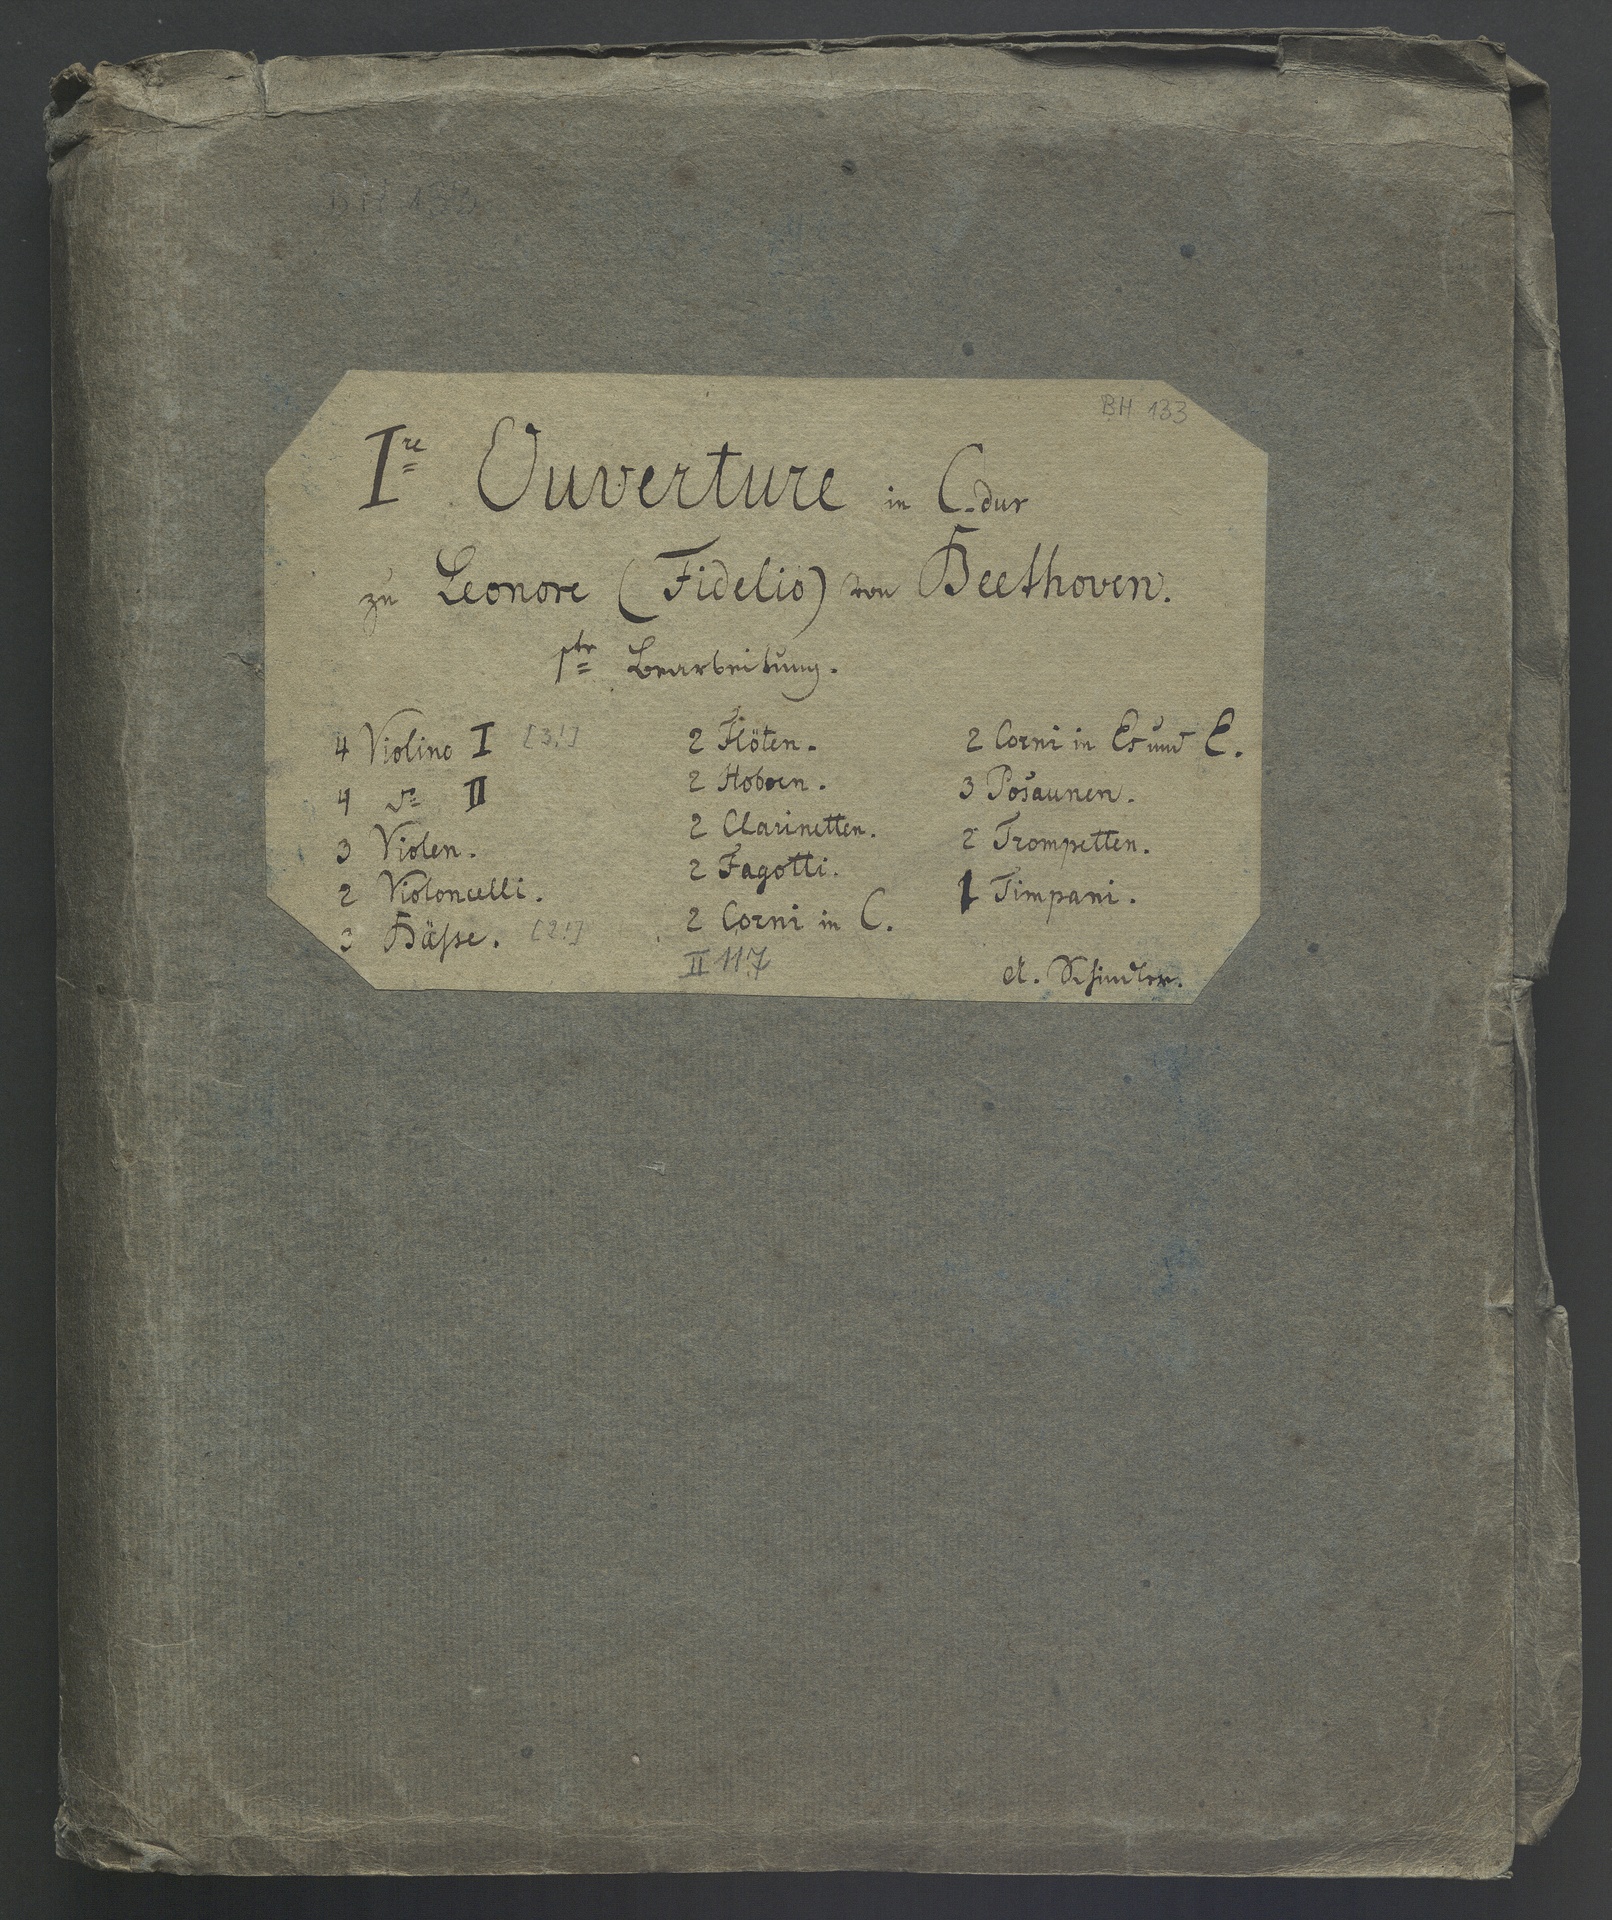 BH 133
BH 133
Ire Ouverture in C-dur
zu Leonore (Fidelio) von Beethoven.
1te Bearbeitung.
4 Violino I [3!]
4 do II
3 Violen.
2 Violoncelli.
3 Bässe. [2!]
2 Flöten.
2 Hoboen.
2 Clarinetten.
2 Fagotti.
2 Corni in C.
II 117
2 Corni in Es und E.
3 Posaunen.
2 Trompetten.
1 Timpani.
A. Schindler.